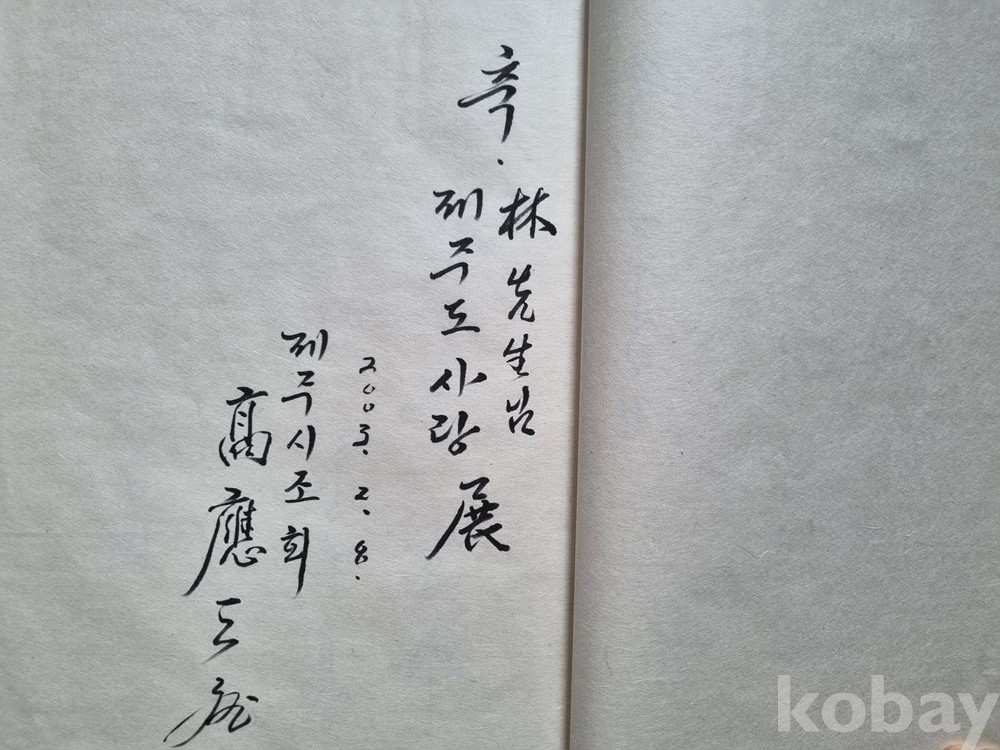 축.
林先生님
제주도사랑展
2003. 2. 8.
제주시조회
高應三
kobay